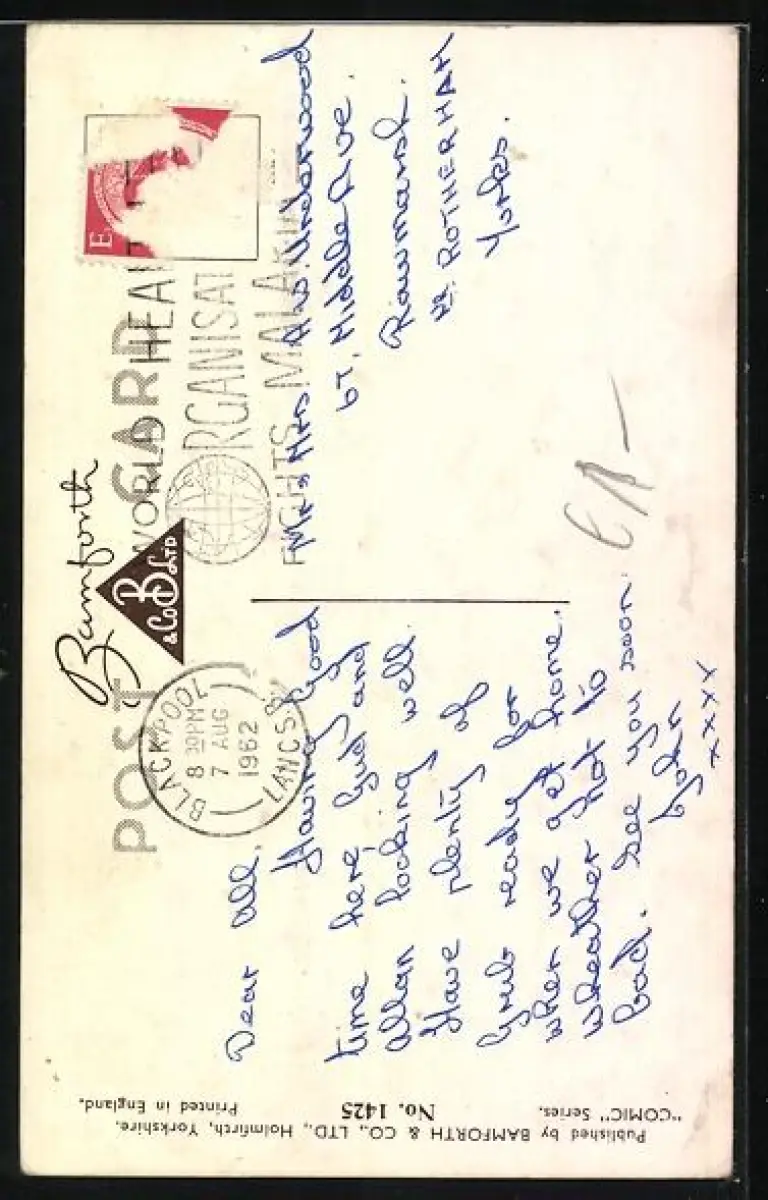 POST CARD
Bamforth
& Co B LTD
BLACKPOOL
8 30PM
7 AUG
1962
LANCS.
WORLD HEAL
ORGANISAT
FIGHTS MALA
E
Dear All,
Having Good
time here, Gus and
Allan looking well.
Have plenty of
Grub ready for
when we get home.
wheather not to
bad. See you soon.
John
xxxx
Mr & Mrs Underwood
67, Middle Ave.
Rawmarsh.
Nr. ROTHERHAM
Yorks.
Published by BAMFORTH & CO., LTD., Holmfirth, Yorkshire.
"COMIC" Series. No. 1425 Printed in England.